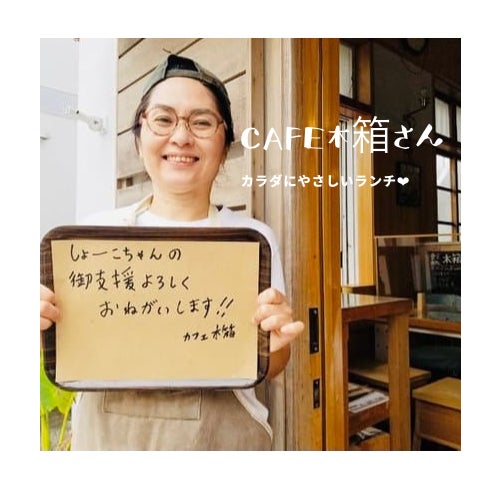 CAFE木箱さん
カラダにやさしいランチ❤
しょーこちゃんの
御支援よろしく
おねがいします!!
カフェ木箱
木箱